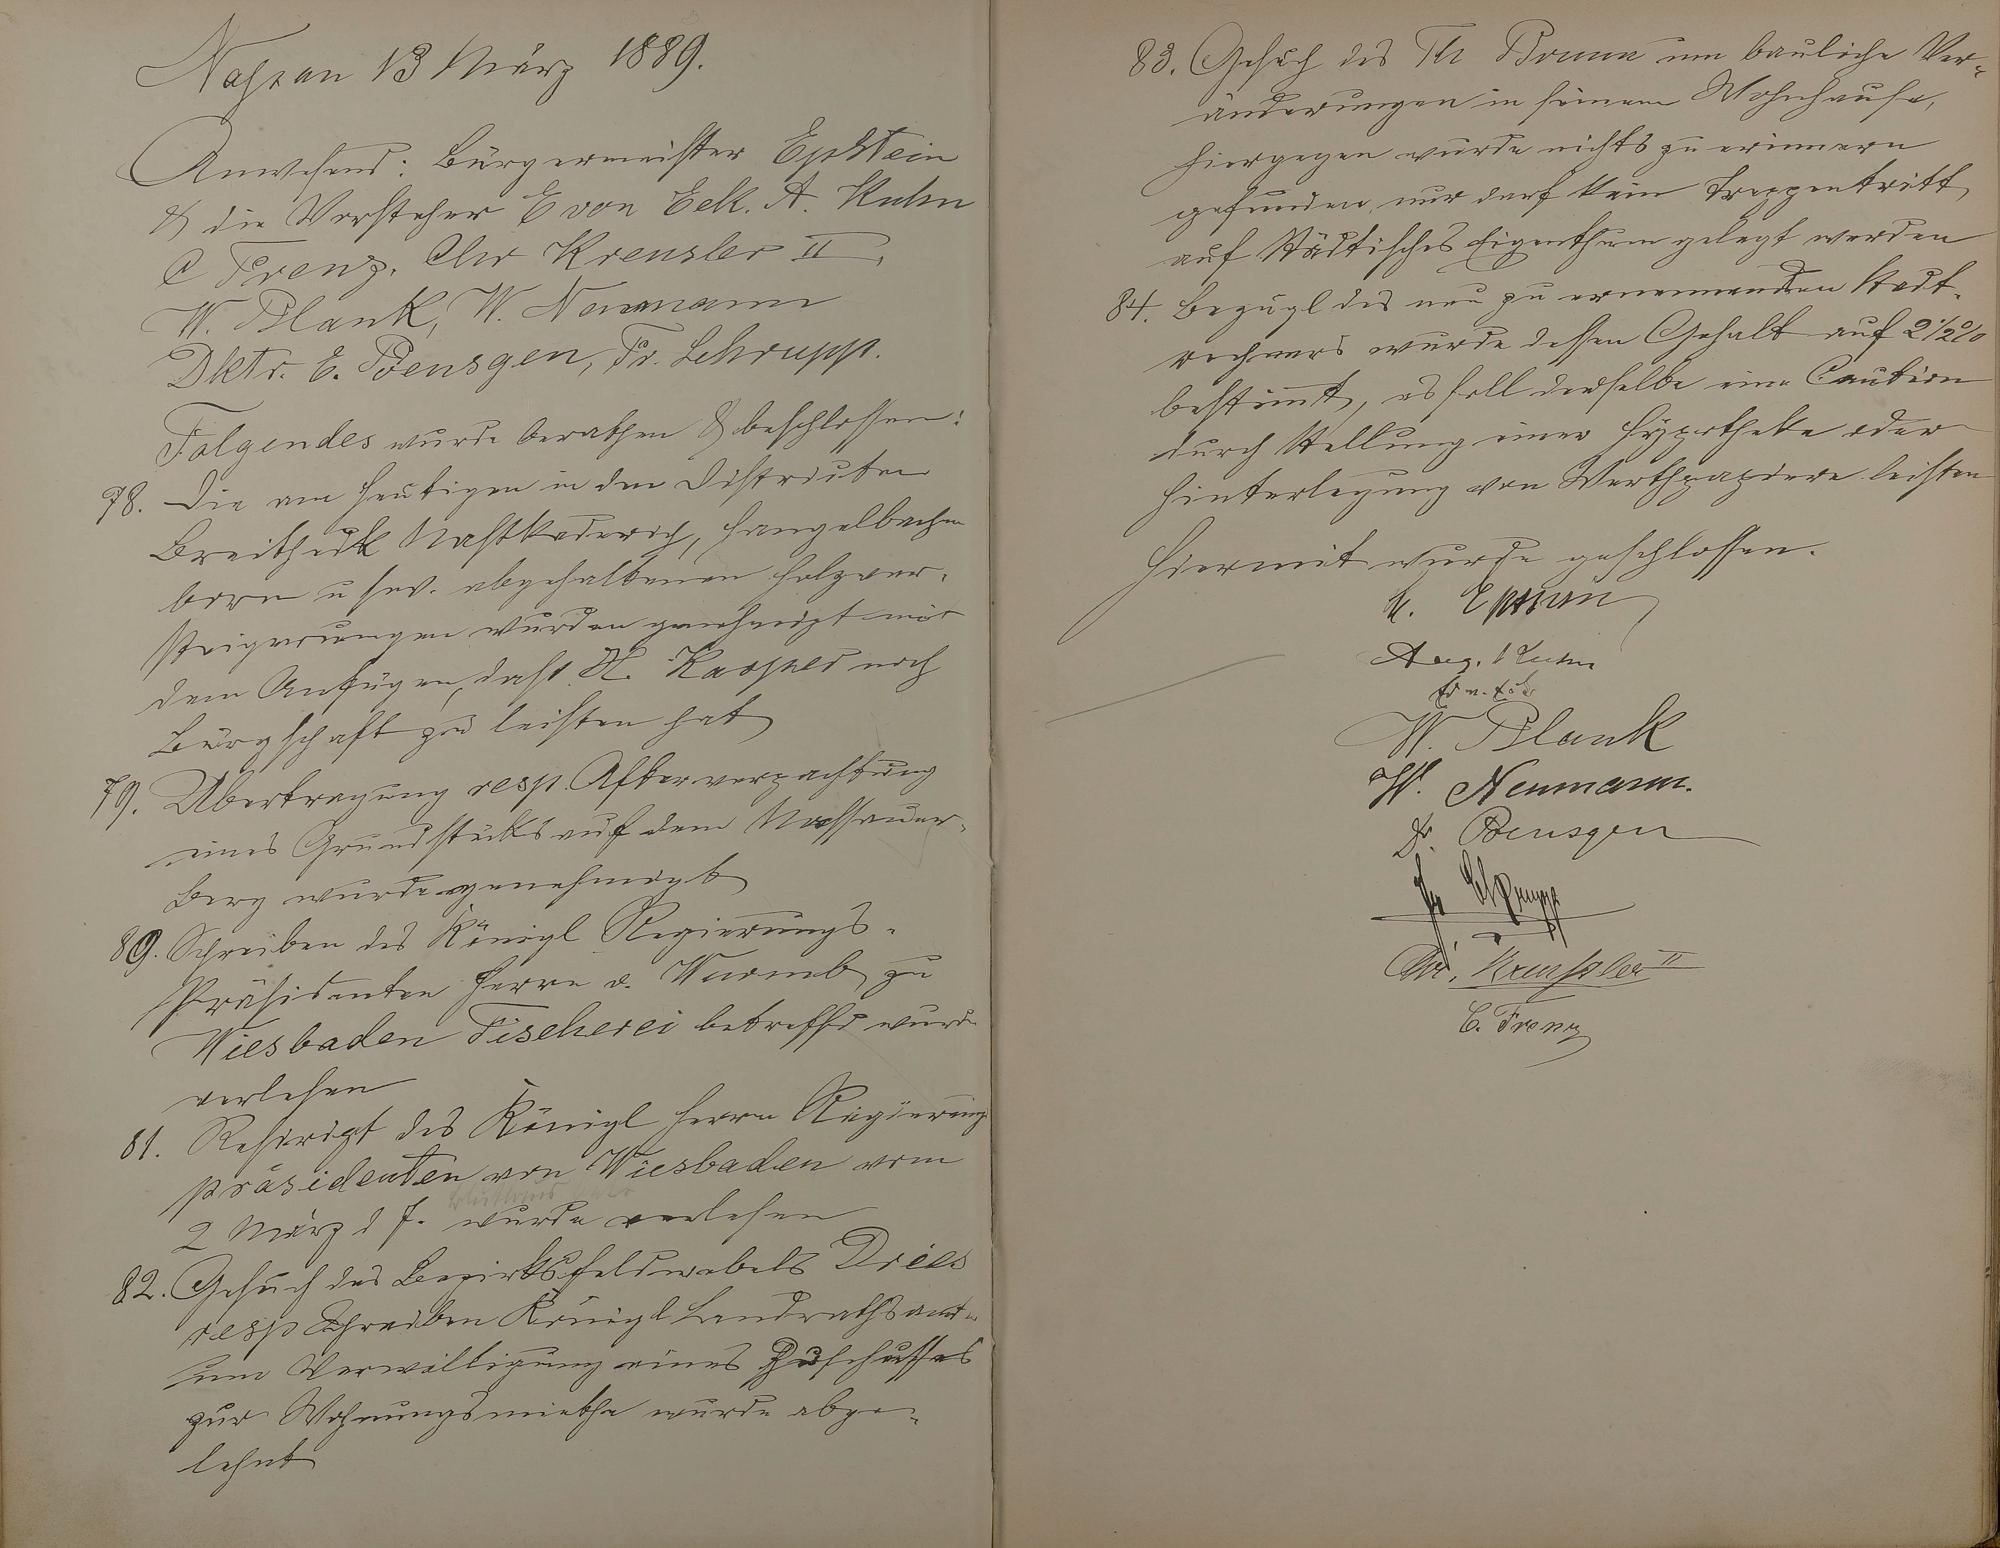 Nassau 13 März 1889.
Anwesend: Bürgermeister Epstein
& die Vorsteher E von Eck. A. Kuhn
C Frenz, Chr Kreusler II,
W. Blank, W. Neumann
Dktr. E. Bensgen, Fr. Schrupp.
Folgendes wurde berathen & beschlossen:
78. Die am heutigen in den Distrikten
Breitheck Hangelbacher
born u s.w. abgehaltenen Holzver-
steigerungen wurden genehmigt mit
dem Anfügen, daß H. Kasper noch
Bürgschaft zu leisten hat
79. Übertragung resp. Afterverpachtung
eines Grundstücks auf dem Nassauer-
Berg wurde genehmigt
80. Schreiben des Königl Regierungs-
Präsidenten Herrn v. Wurmb zu
Wiesbaden Fischerei betreffd wurde
verlesen
81. Rescript des Königl Herrn Regierungs
präsidenten von Wiesbaden vom
2 März d J. wurde verlesen
82. Gesuch des Bezirksfeldwebels Dries
resp Schreiben Königl Landrathsamt-
um Verwilligung eines Zuschusses
zur Wohnungsmiethe wurde abge-
lehnt
83. Gesuch des Th Bruun um bauliche Ver-
änderungen in seinem Wohnhause,
hiergegen wurde nichts zu erinnern
gefunden, nur darf kein Treppentritt
auf städtisches Eigenthum gelegt werden
84. Bezügl des neu zu ernennenden Stadt-
rechners wurde dessen Gehalt auf 2 1/2 %
bestimmt, es soll derselbe eine Caution
durch Stellung einer Hypotheke oder
Hinterlegung von Werthpapiere leisten
Hiermit wurde geschlossen.
Epstein
Aug. Kuhn
Ed v. Eck
W. Blank
W. Neumann.
Dr. Bensgen
Fr Schrupp
Chr. Kreusler II
C. Frenz